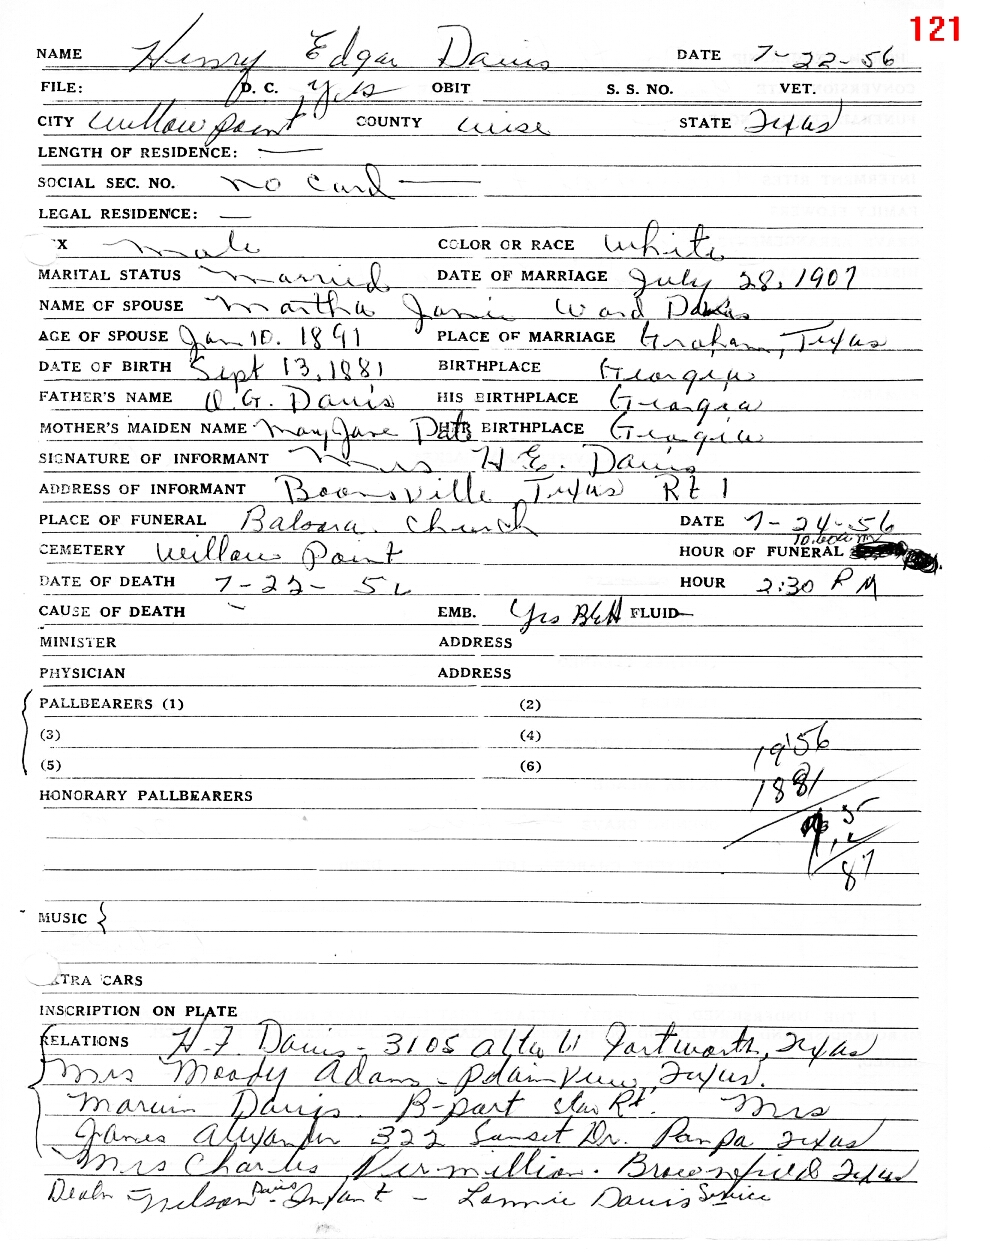 121
NAME Henry Edgar Davis DATE 7-22-56
FILE: D. C. yes OBIT S. S. NO. VET.
CITY Willow point COUNTY Wise STATE Texas
LENGTH OF RESIDENCE: —
SOCIAL SEC. NO. no Card —
LEGAL RESIDENCE: —
X male COLOR OR RACE white
MARITAL STATUS married DATE OF MARRIAGE July 28, 1907
NAME OF SPOUSE Martha Janie Ward Davis
AGE OF SPOUSE Jan 10. 1891 PLACE OF MARRIAGE Graham, Texas
DATE OF BIRTH Sept 13, 1881 BIRTHPLACE Georgia
FATHER'S NAME O.G. Davis HIS BIRTHPLACE Georgia
MOTHER'S MAIDEN NAME Mary Jane HER BIRTHPLACE Georgia
SIGNATURE OF INFORMANT Mrs H.E. Davis
ADDRESS OF INFORMANT Boonsville Texas Rt 1
PLACE OF FUNERAL Balsora Church DATE 7-24-56
CEMETERY Willow Point HOUR OF FUNERAL 10:00 a m
DATE OF DEATH 7-22-56 HOUR 2:30 P M
CAUSE OF DEATH - EMB. Yes FLUID
MINISTER ADDRESS
PHYSICIAN ADDRESS
PALLBEARERS (1) (2)
(3) (4)
(5) (6)
1956
1881
HONORARY PALLBEARERS
87
MUSIC
XTRA CARS
INSCRIPTION ON PLATE
RELATIONS H.F. Davis - 3105 Fortworth, Texas
Mrs Moody Adams - Plainview, Texas.
Marvin Davis. B-port star Rt. Mrs
James Alexander 322 Sunset Dr. Pampa Texas
Mrs Charles Vermillion. Brownfield Texas
Nelson Davis Infant - Lonnie Davis Service